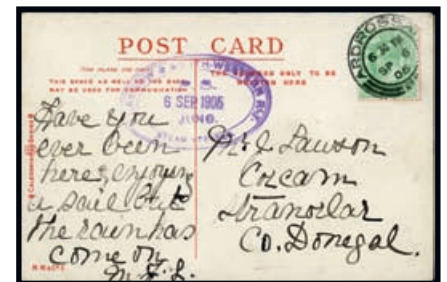 POST CARD
(FOR INLAND USE ONLY)
THIS SPACE AS WELL AS THE BACK
MAY BE USED FOR COMMUNICATION
THE ADDRESS ONLY TO BE
WRITTEN HERE
6 SEP 1905
JUNO.
ARDROSSAN
SP 6
05
Have you
ever been
here, enjoying
a sail but
the rain has
come on
M.J.L.
J. Lawson
Corcam
Stranorlar
Co. Donegal.